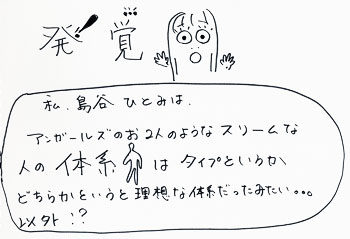 発覚
私、島谷ひとみは、
アンガールズのお2人のようなスリームな
人の体系はタイプというか
どちらかというと理想な体系だったみたい。。。
以外!?